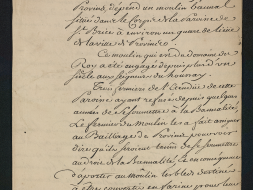 Provins, dépend un moulin banal
situé dans le Corps de la Paroisse de
St Brice à environ un quart de lieue
de la ville de Provins
Ce moulin qui est du domaine du
Roy a été engagé depuis plus d'un
siècle aux seigneurs du houssay
Trois fermiers de
Paroisse ayant refusé depuis quelques
années de se soumettre à la Bannalité,
Le fermier du Moulin les a fait assigner
au Bailliage de Provins pour voir
dire qu'ils seroient tenus de se soumettre
au droit de la Bannalité, Ce en conséquence
d'aporter au moulin les bleds destinés
à être convertis en farine pour leur